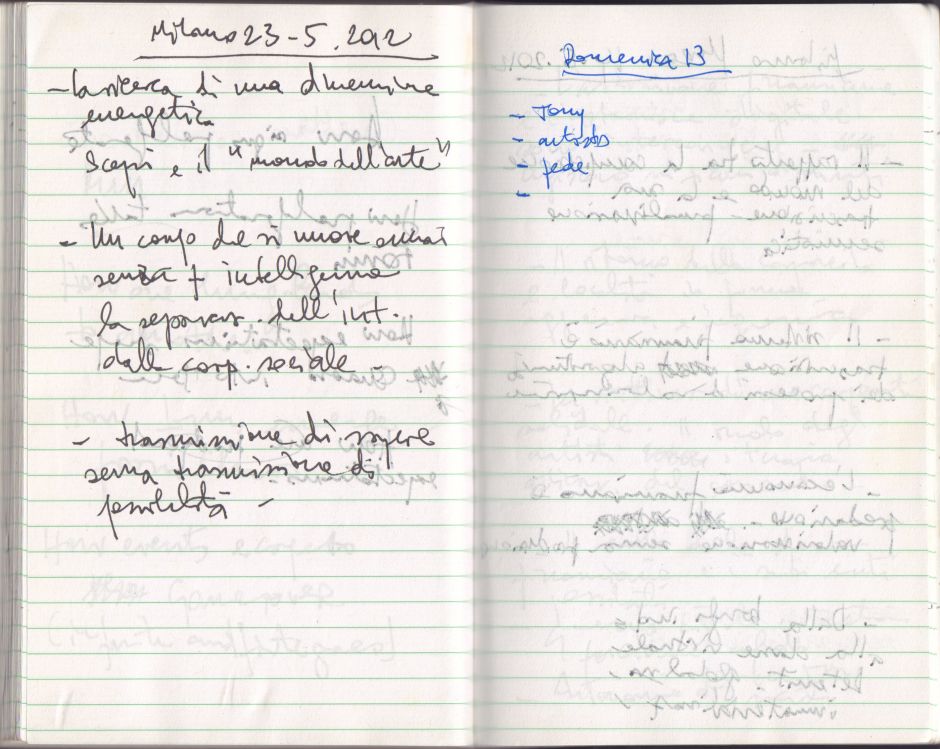 Milano 23-5.2012
- La ricerca di una dimensione
energetica
Scepsi e il "mondo dell'arte"
- Un corpo che si muove ormai
senza + intelligenza
la separaz. dell'int.
dalla corp. sociale
- trasmissione di sapere
senza trasmissione di
possibilità -
Domenica 13
- Tony
-
- fede
-